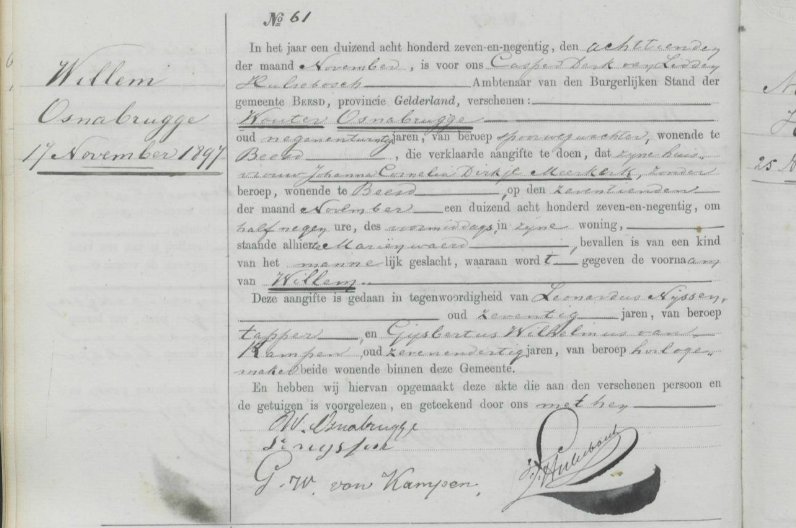 No 61
Willem
Osnabrugge
17 November 1897
In het jaar een duizend acht honderd zeven-en-negentig, den achttienden
der maand November, is voor ons Casper Derk van Lidden
Hulsebosch Ambtenaar van den Burgerlijken Stand der
gemeente BEESD, provincie Gelderland, verschenen:
Wouter Osnabrugge
oud negenentwintig jaren, van beroep spoorwegwachter, wonende te
Beesd, die verklaarde aangifte te doen, dat zijne huis-
vrouw Johanna Cornelia Dirkje Meerkerk, zonder
beroep, wonende te Beesd, op den zeventienden
der maand November een duizend acht honderd zeven-en-negentig, om
half negen ure, des voormiddags, in zijne woning,
staande alhier Mariënwaerd, bevallen is van een kind
van het mannelijk geslacht, waaraan wordt gegeven de voornaam
van Willem
Deze aangifte is gedaan in tegenwoordigheid van Leonardus Nijssen,
oud zeventig jaren, van beroep
tapper, en Gijsbertus Wilhelmus van
Kampen, oud zevenendertig jaren, van beroep horloge-
maker beide wonende binnen deze Gemeente.
En hebben wij hiervan opgemaakt deze akte die aan den verschenen persoon en
de getuigen is voorgelezen, en geteekend door ons met hen
W. Osnabrugge
G. W. van Kampen.
25 N